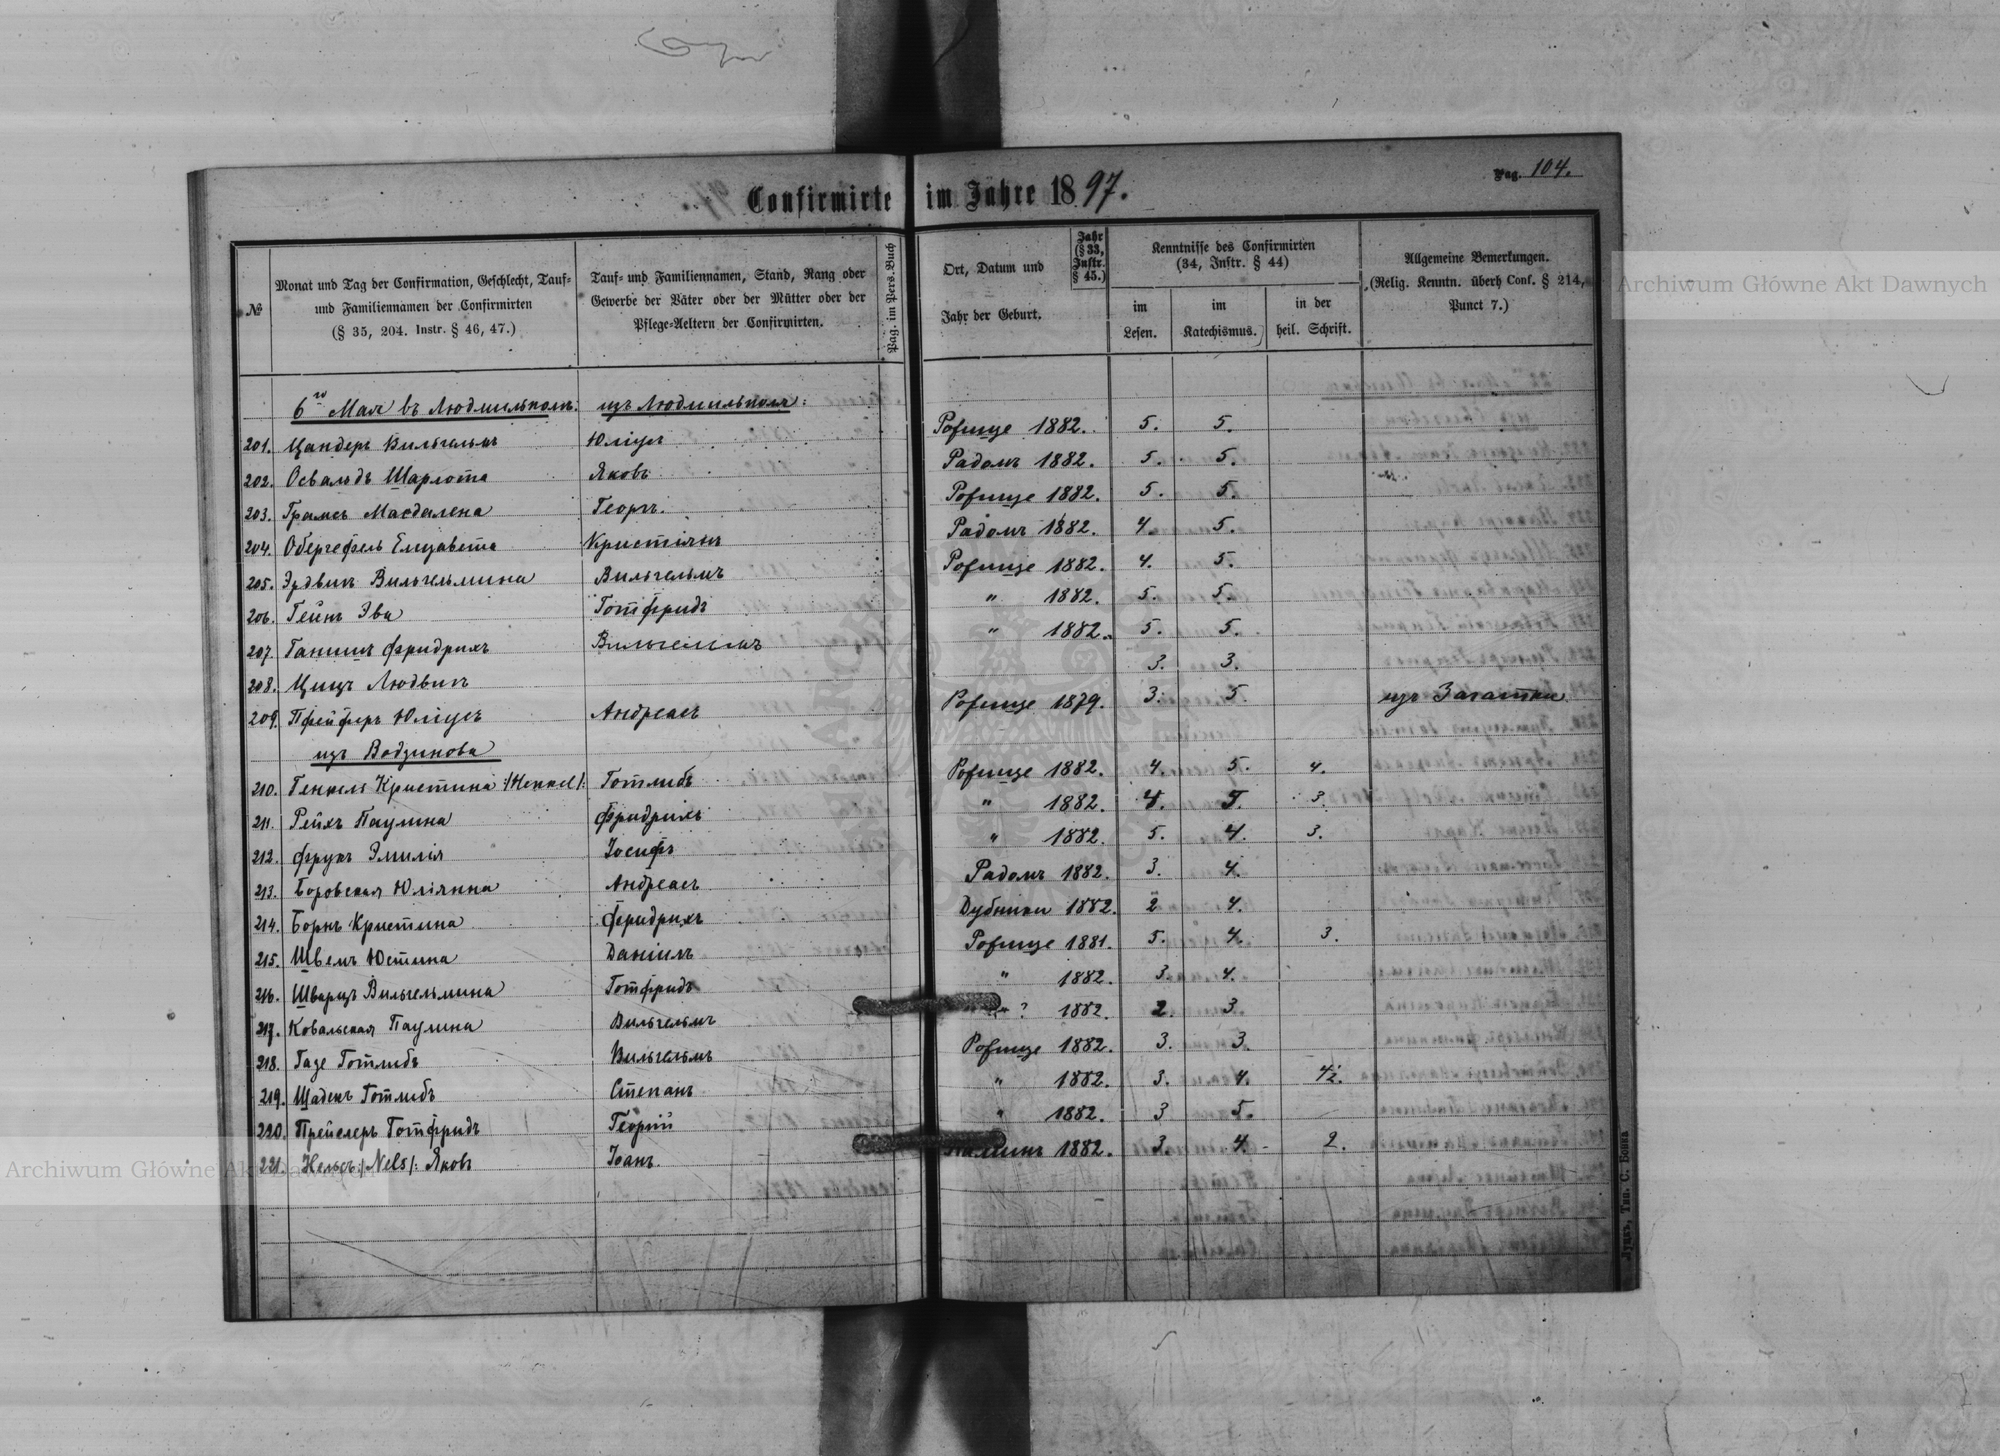 Pag. 104.
Confirmirte im Jahre 1897.
№
Monat und Tag der Confirmation, Geschlecht, Tauf-
und Familiennamen der Confirmirten
(§ 35, 204. Instr. § 46, 47.)
Tauf- und Familiennamen, Stand, Rang oder
Gewerbe der Väter oder der Mütter oder der
Pflege-Aeltern der Confirmirten.
Pag. im Pers.-Buch
Ort, Datum und
Jahr der Geburt.
Jahr
(§ 33,
Instr.
§ 45.)
Kenntnisse des Confirmirten
(34, Instr. § 44)
im
Lesen.
im
Katechismus.
in der
heil. Schrift.
Allgemeine Bemerkungen.
(Relig. Kenntn. überh Conf. § 214,
Punct 7.)
6го Мая въ Людмильполь. изъ Людмильполя:
201. Цандеръ Вильгельмъ Юліусъ Рожище 1882. 5. 5.
202. Освальдъ Шарлота Яковъ Радомъ 1882. 5. 5.
203. Грамсъ Магдалена Георгъ. Рожище 1882. 5. 5.
204. Обергефель Елизавета Христіянъ Радомъ 1882. 4. 5.
205. Эрдвинъ Вильгельмина Вильгельмъ Рожище 1882. 4. 5.
206. Гейнъ Эва Готфридъ " 1882. 5. 5.
207. Фридрихъ Вильгельмъ " 1882. 5. 5.
208. Цицъ Людвигъ 3. 3.
209. Пфейферъ Юліусъ Андреасъ Рожище 1879. 3. 5. изъ Загатки
изъ Водзинова
210. Генкель Кристина /:Henkel/: Готлибъ Рожище 1882. 4. 5. 4.
211. Рейхъ Паулина Фридрихъ " 1882. 4. 5. 3.
212. Эмилія Іосифъ " 1882. 5. 4. 3.
213. Боровская Юліянна Андреасъ Радомъ 1882. 3. 4.
214. Борнъ Кристина Фридрихъ Дубники 1882. 2 4.
215. Юстина Даніилъ Рожище 1881. 5. 4. 3.
216. Шварцъ Вильгельмина Готфридъ " 1882. 3. 4.
217. Ковальская Паулина Вильгельмъ " ? 1882. 2. 3.
218. Газе Готлибъ Вильгельмъ Рожище 1882. 3. 3.
219. Готлибъ Степанъ " 1882. 3. 4.
220. Прейслеръ Готфридъ Георгій " 1882. 3 5.
221. Нельсъ /:Nels/: Яковъ Іоанъ. 1882. 3. 4. 2.
Луцкъ, Тип. С. Бонка
Archiwum Główne Akt Dawnych
Archiwum Główne Akt Dawnych